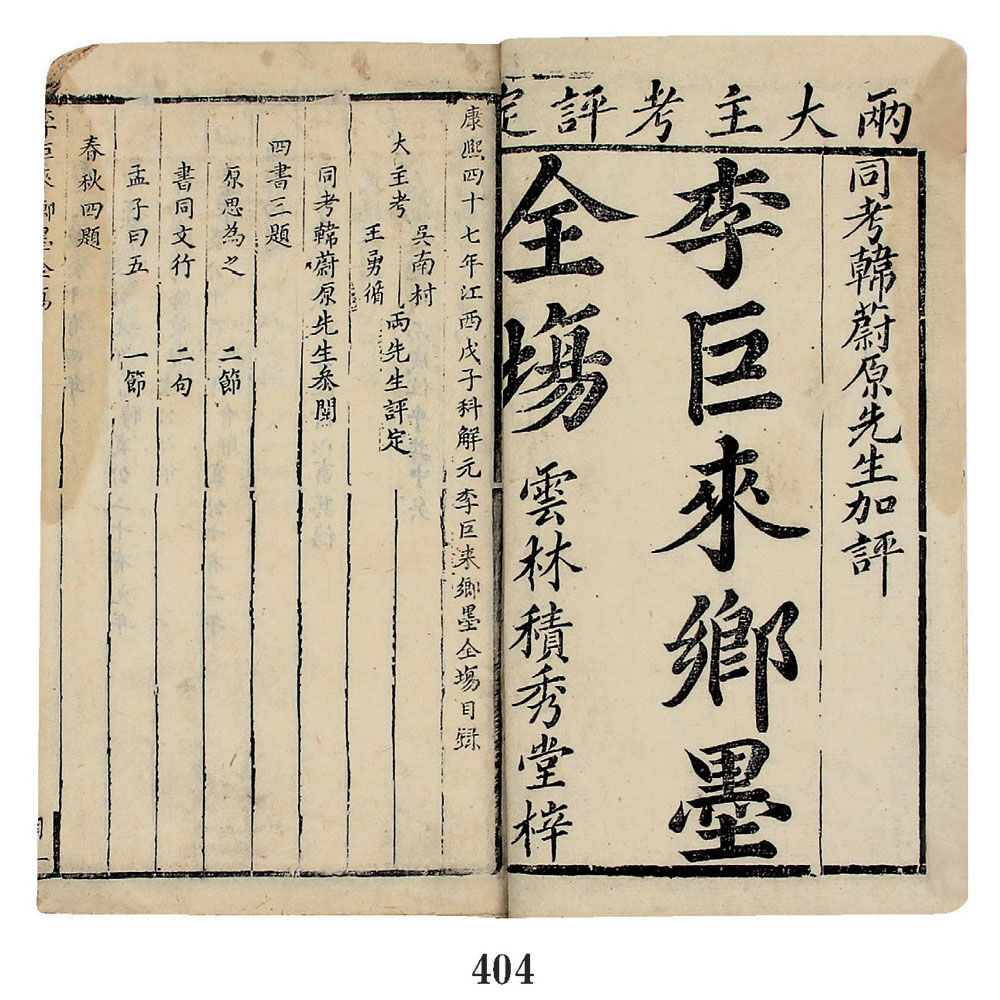 兩大主考評定
同考韓蔚原先生加評
李巨來鄉墨
全場
雲林積秀堂梓
康熙四十七年江西戊子科解元李巨来鄉墨全場目錄
吳南村
大主考 兩先生評定
王勇循
同考韓蔚原先生叅閱
四書三題
原思為之 二節
書同文行 二句
孟子曰五 一節
春秋四題
李巨來鄉墨全場
404